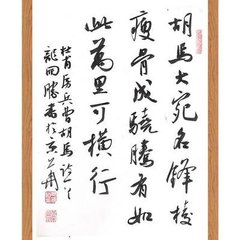 胡馬大宛名鋒棱
瘦骨成驍騰有如
此萬里可橫行
杜甫房兵曹胡馬詩
書於